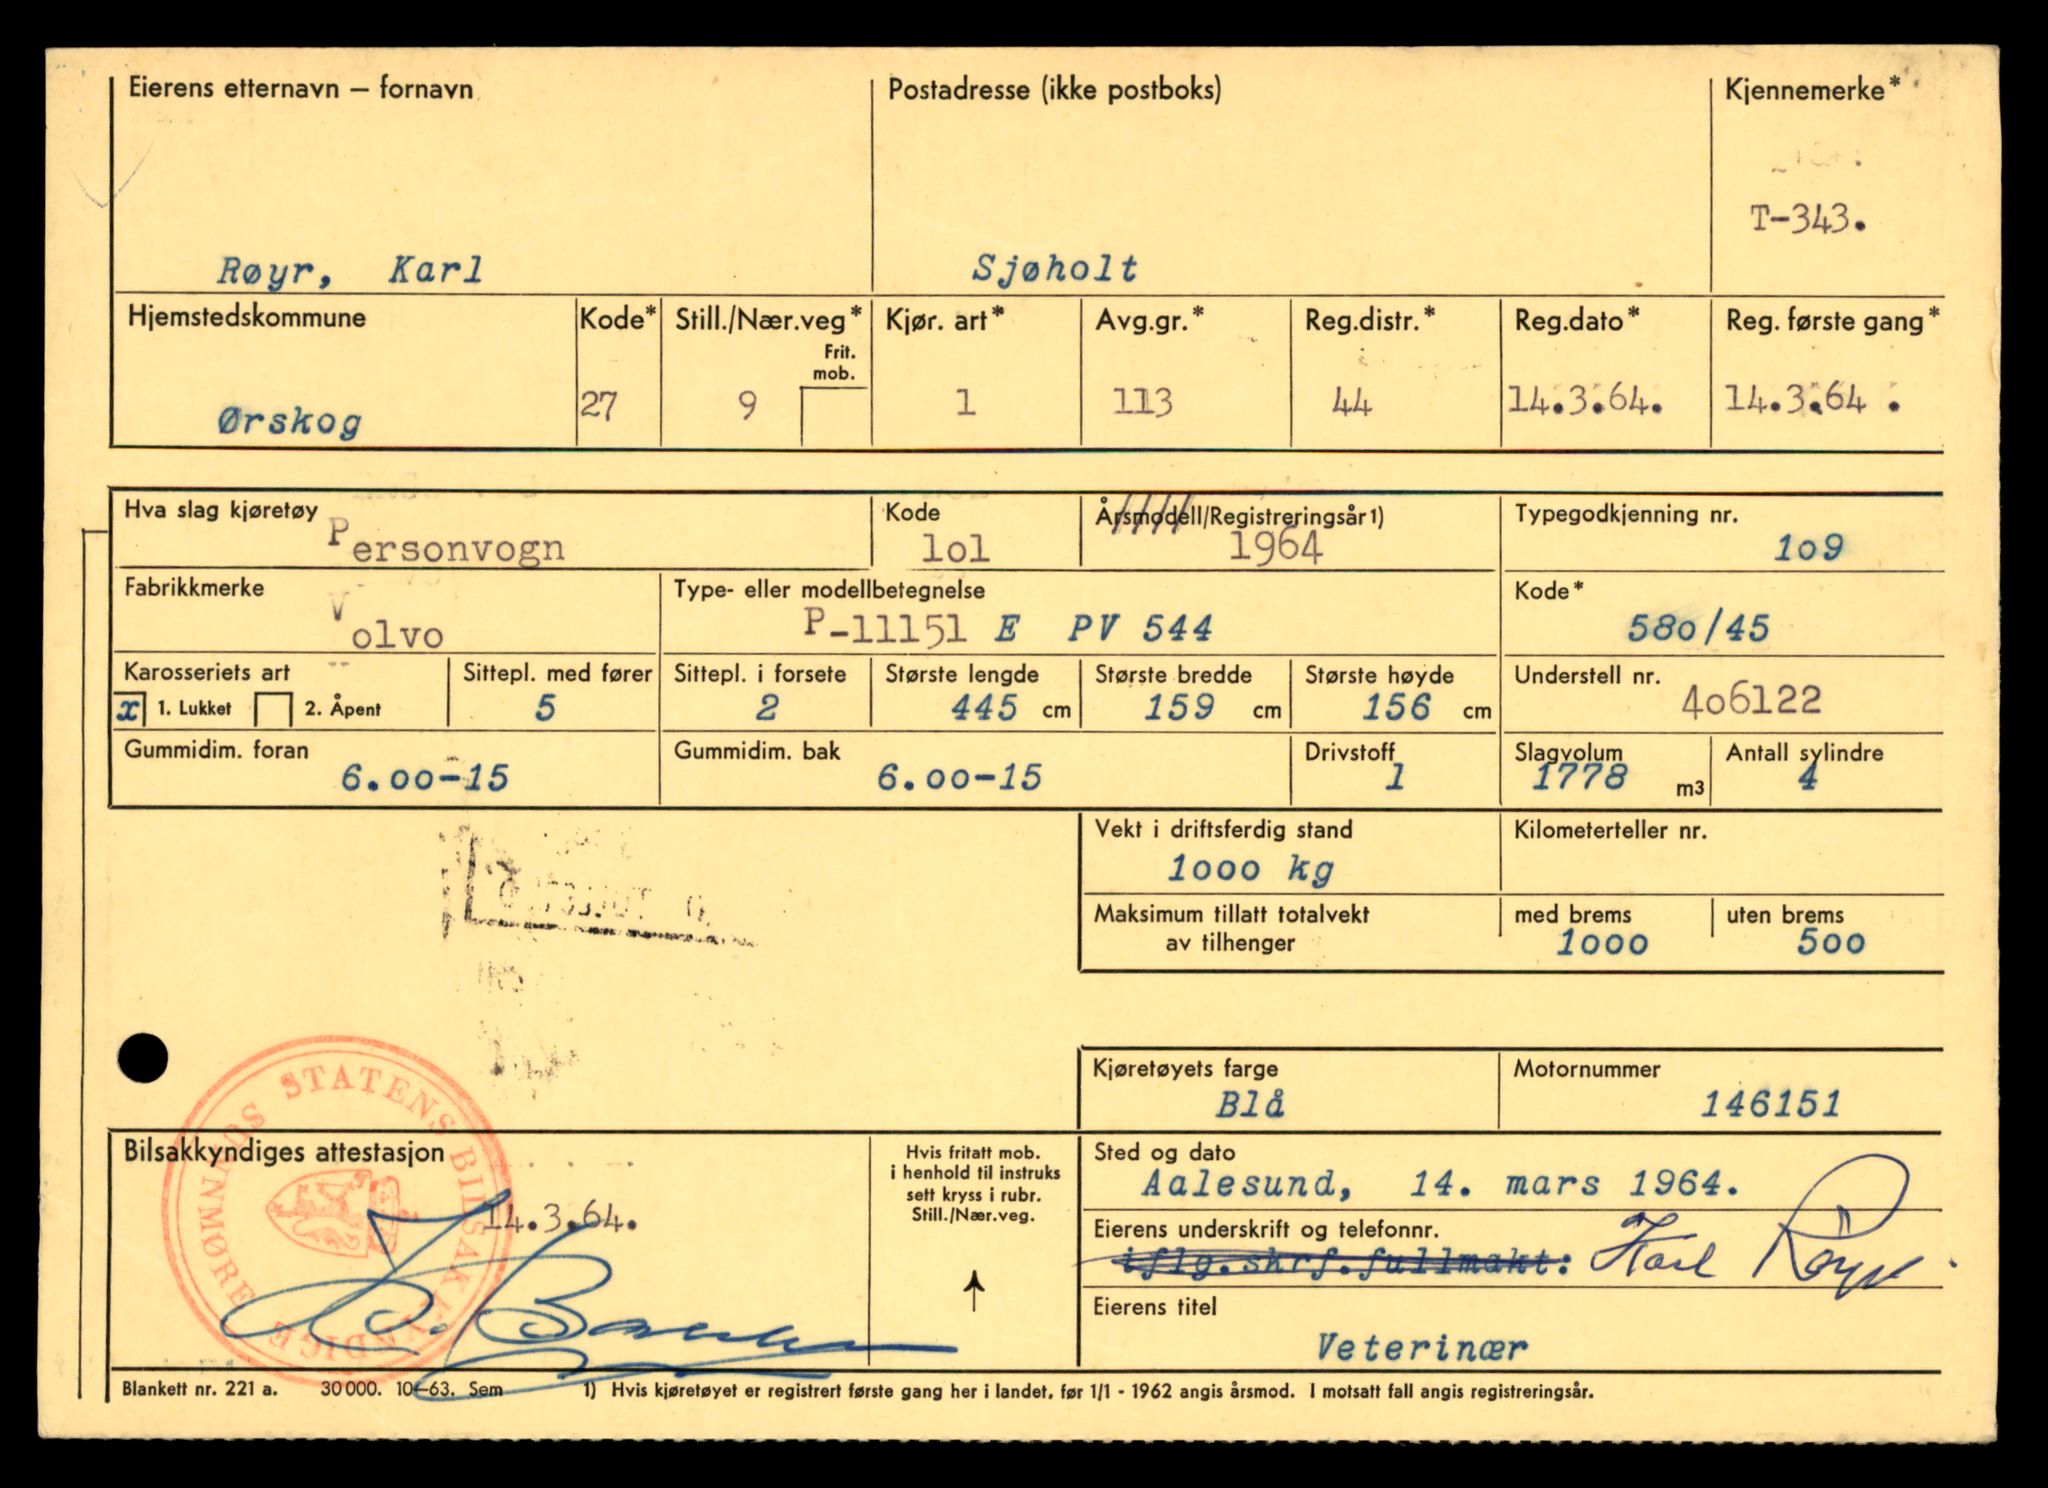 Eierens etternavn – fornavn
Postadresse (ikke postboks)
Kjennemerke*
T-343.
Røyr, Karl
Sjøholt
Hjemstedskommune
Kode*
Still./Nær.veg*
Frit. mob.
Kjør. art*
Avg.gr.*
Reg.distr.*
Reg.dato*
Reg. første gang*
Ørskog
27
9
1
113
44
14.3.64.
14.3.64.
Hva slag kjøretøy
Personvogn
Kode
lol
Årsmodell/Registreringsår1)
1964
Typegodkjenning nr.
1o9
Fabrikkmerke
Volvo
Type- eller modellbetegnelse
P-11151 E PV 544
Kode*
58o/45
Karosseriets art
x 1. Lukket 2. Åpent
Sittepl. med fører
5
Sittepl. i forsete
2
Største lengde
445 cm
Største bredde
159 cm
Største høyde
156 cm
Understell nr.
4o6122
Gummidim. foran
6.oo-15
Gummidim. bak
6.oo-15
Drivstoff
1
Slagvolum
1778 m3
Antall sylindre
4
Vekt i driftsferdig stand
1ooo kg
Kilometerteller nr.
Maksimum tillatt totalvekt
av tilhenger
med brems
1ooo
uten brems
5oo
Kjøretøyets farge
Blå
Motornummer
146151
STATENS BILSAKKYNDIGE
Bilsakkyndiges attestasjon
14.3.64.
Hvis fritatt mob.
i henhold til instruks
sett kryss i rubr.
Still./Nær.veg.
Sted og dato
Aalesund, 14. mars 1964.
Eierens underskrift og telefonnr.
iflg.skrf.fullmakt: Karl Røyr
Eierens titel
Veterinær
Blankett nr. 221 a. 30000. 10–63. Sem
1) Hvis kjøretøyet er registrert første gang her i landet, før 1/1 - 1962 angis årsmod. I motsatt fall angis registreringsår.